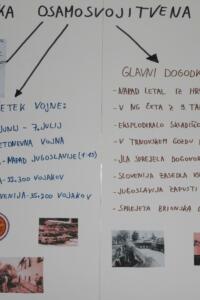 KA OSAMOSVOJITVENA
ETEK VOJNE:
JUNIJ - 7. JULIJ
ETDNEVNA VOJNA
- NAPAD JUGOSLAVIJE
VOJAKOV
VENIJA - 35.200 VOJAKOV
GLAVNI DOGODK
- NAPAD LETAL IZ
- V NG ČETA Z 9 TA
- EKSPLODIRALO SKLADIŠČ
- V TRNOVSKEM GOZDU
- JLA SPREJELA DOGOVOR
- SLOVENIJA ZASEDLA
- JUGOSLAVIJA ZAPUSTI
- SPREJETA BRIONSKA